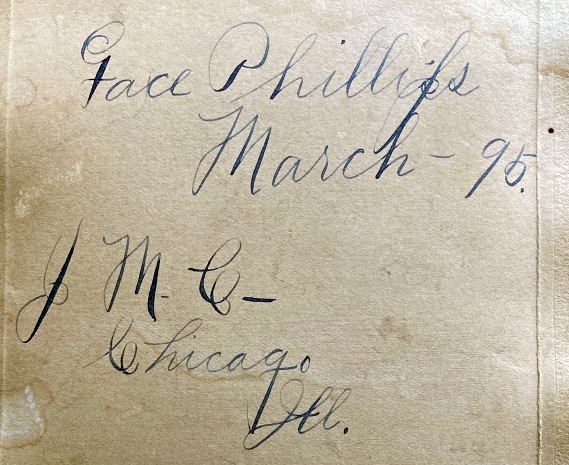 Grace Phillips
March - 95.
J. M. C. -
Chicago
Ill.